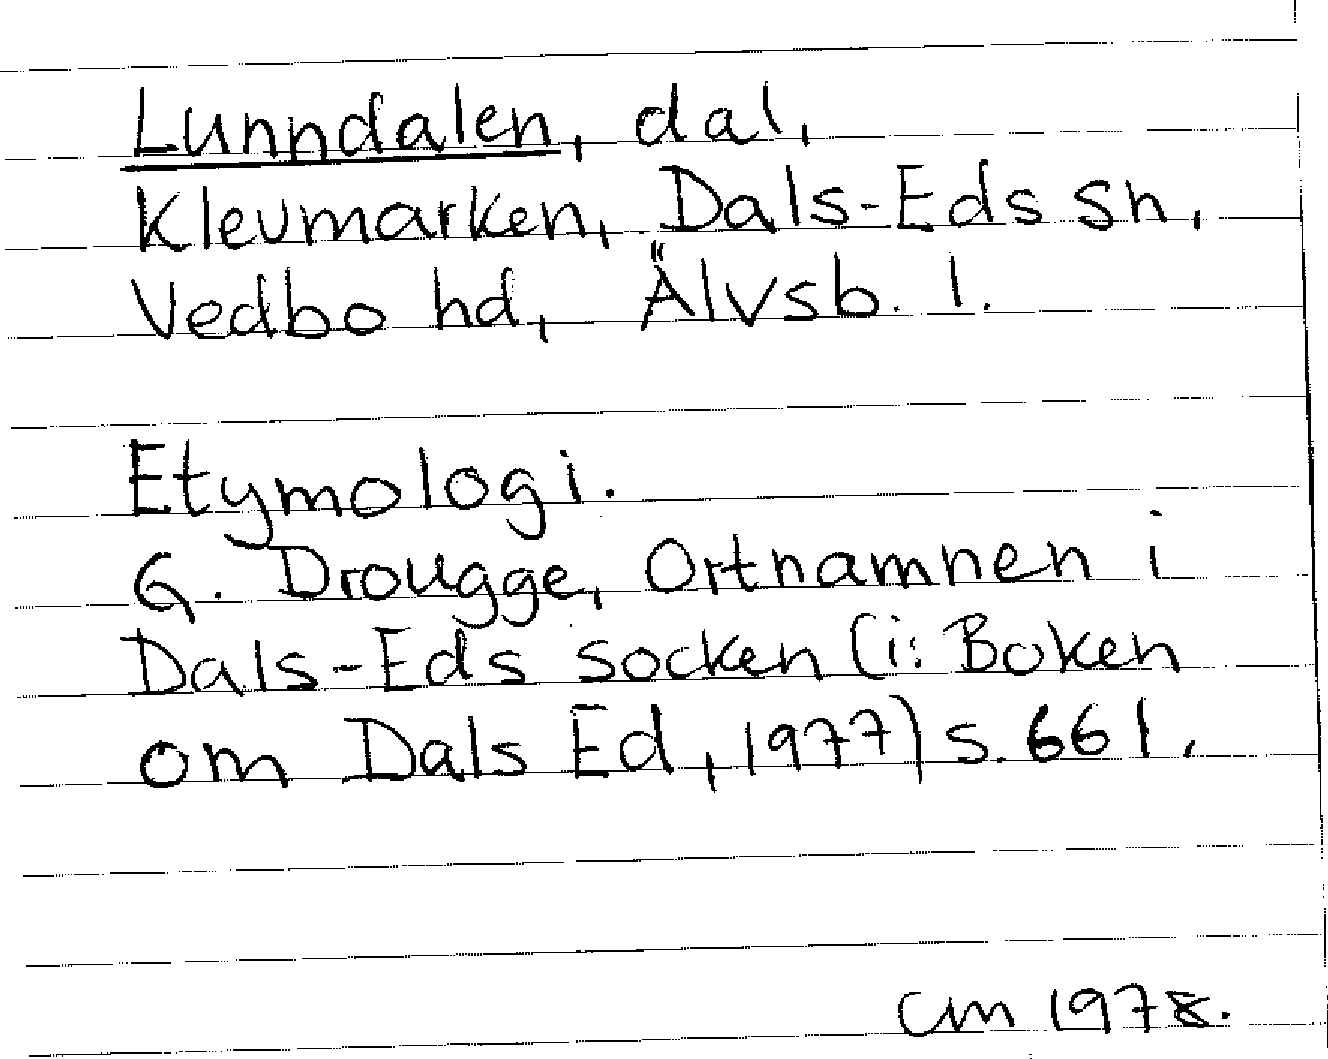 Lunndalen, dal,
Klevmarken, Dals-Eds sn,
Vedbo hd, Älvsb. l.
Etymologi.
G. Drougge, Ortnamnen i
Dals-Eds socken (i: Boken
om Dals Ed, 1977) s. 661.
CM 1978.